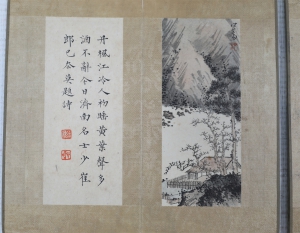 丹楓江冷人初去黃葉聲多
酒不辭今日濟南名士少崔
郎已卒莫題詩